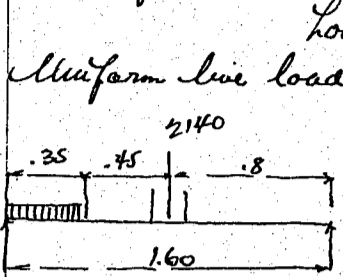 Uniform live load
2140
.35 .45 .8
1.60